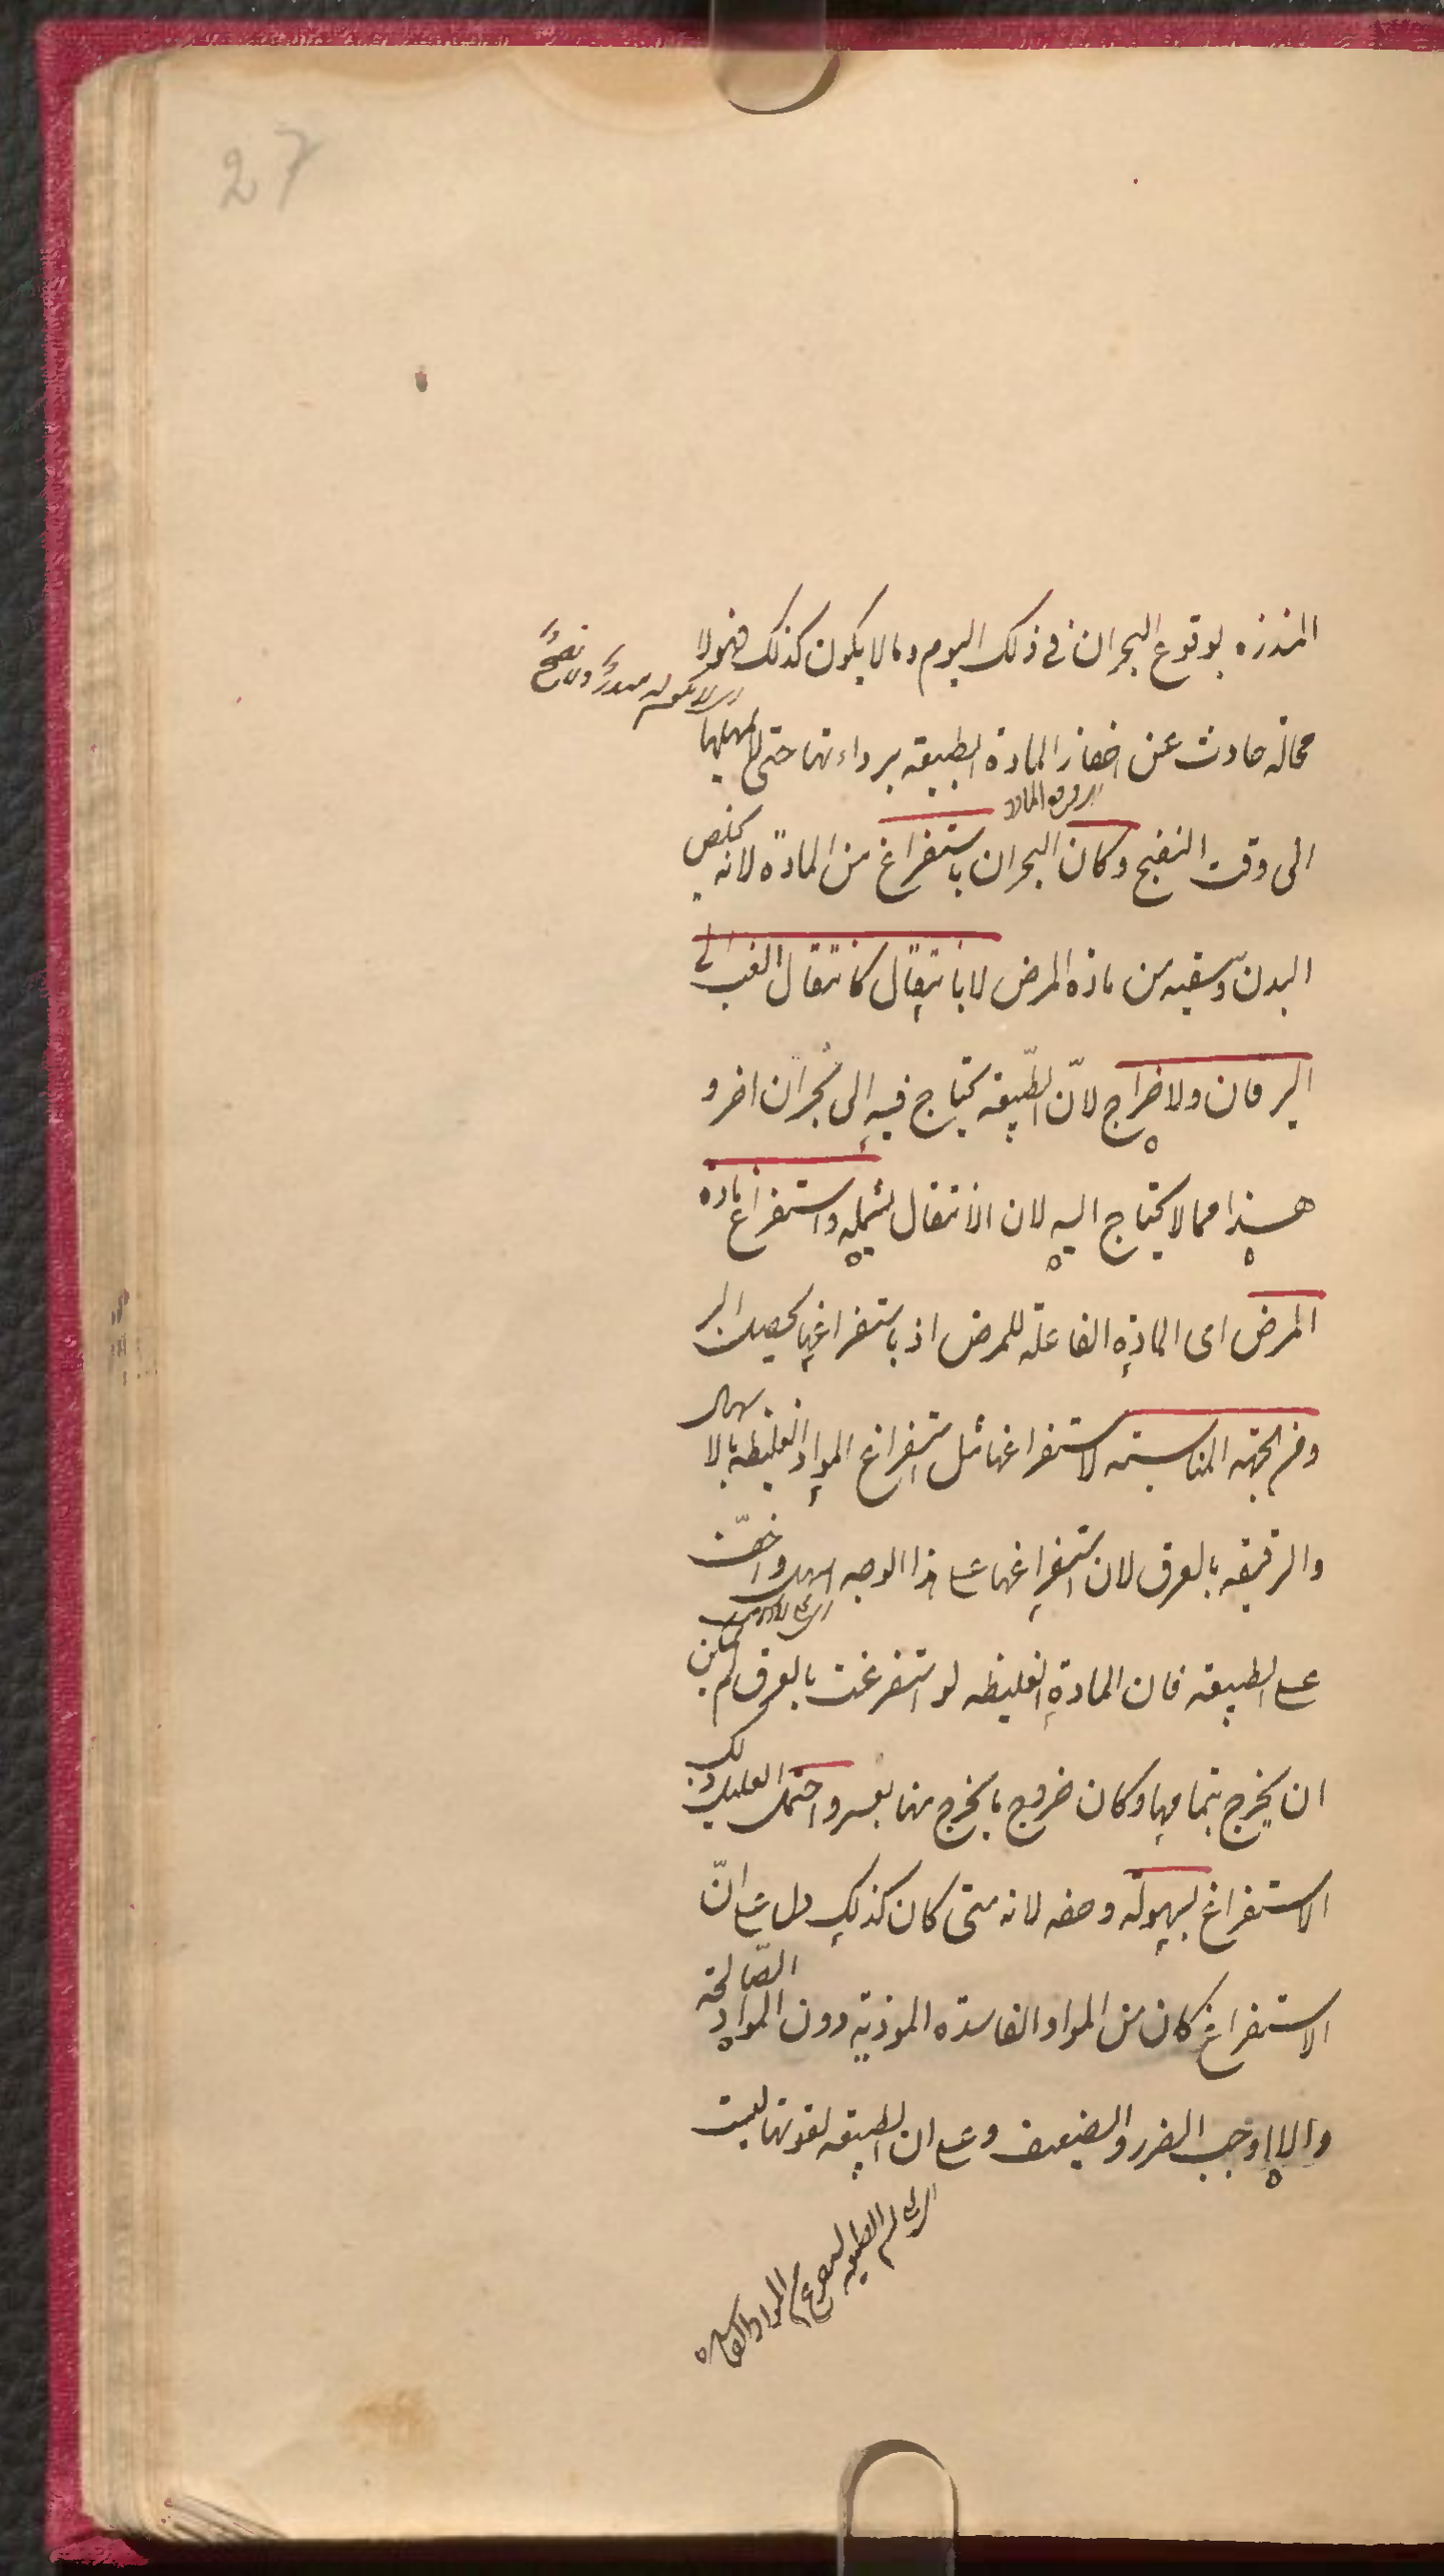 27
المنذره بوقوع البحران فى ذلك اليوم وما لا يكون كذلك فهو لا
محالة حادث عن اضفار المادة الطبيعة برداءتها حتى لا تمهلها
الى وقت النضج وكان البحران باستفراغ من المادة لانه يخلص
البدن وينقيه من مادة المرض لا بانتقال كانتقال الغب الى
اليرقان ولا خراج لانّ الطّبيعة يحتاج فيه الى بُحران اخر و
هذا مما لا يحتاج اليه لان الانتقال يشمله واستفراغ مادة
المرض اى المادة الفاعلة للمرض اذ باستفراغها يحصل البر
ومن الجهة المناسبة لاستفراغها مثل استفراغ المواد الغليظة بالاسهال
والرقيقة بالعرق لان استفراغها على هذا الوجه اسهل واخفّ
على الطبيعة فان المادة الغليظه لو استفرغت بالعرق لم يمكن
ان يخرج بتمامها وكان خروج ما يخرج منها بعسر واحتمل العليل ذلك
الاستفراغ بسهولة وخفه لانه متى كان كذلك دل على انّ
الاستفراغ كان من المواد الفاسدة الموذية دون المواد الصّالحة
والا لاوجب الضرر والضعف وعلى ان الطبيعه لقوتها ليست